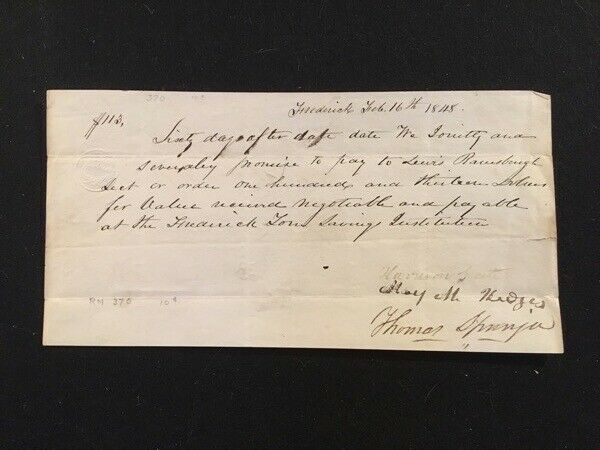 370
Frederick Feb. 16th 1848.
$113,
Sixty days after date We Jointly and
severaley promise to pay to Lewis Ramsburgh
or order one hundred and thirteen dolears
for Value received negotiable and payable
at the Frederick Town Savings Institution
Harrison
M. Hedges
Thomas Springer
RN 370 10¢